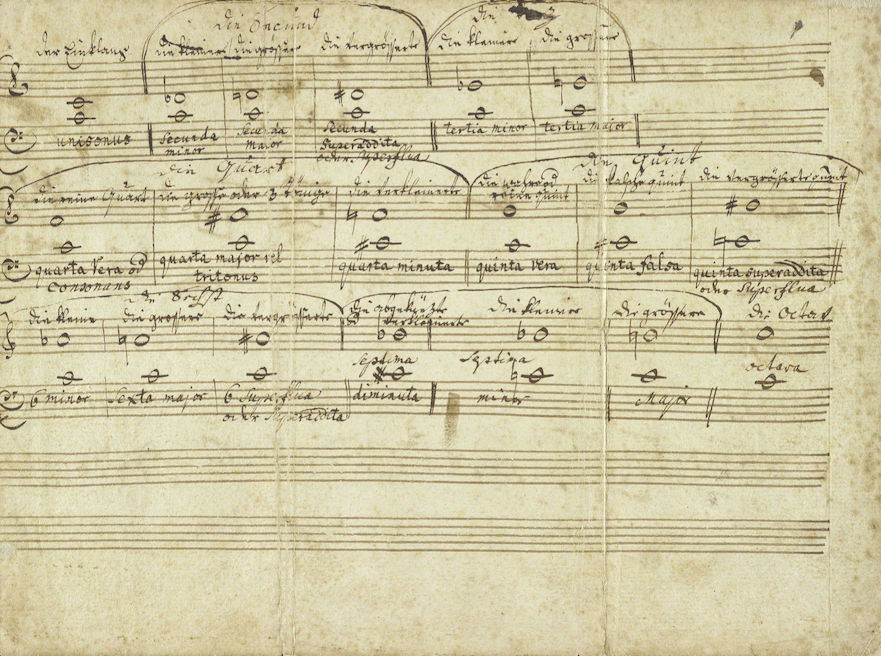 die Secund
die
der Einklang die kleinere die grössere die vergrösserte die kleinere die grössere
unisonus Secunda minor Secunda maior Secunda Superaddita oder Superflua tertia minor tertia major
die Quart
die Quint
die reine Quart die grosse oder 3 tönige die verkleinerte die reine Quint die falsche quint die vergrösserte quint
quarta vera od Consonans quarta major vel tritonus quarta minuta quinta vera quinta falsa quinta superaddita oder Superflua
die Sechst
die kleine die grössere die vergrösserte die verkleinerte die kleinere die grössere die Octav
Septima Septima octava
6 minor Sexta major 6 Superflua oder Superaddita diminuta minor Major